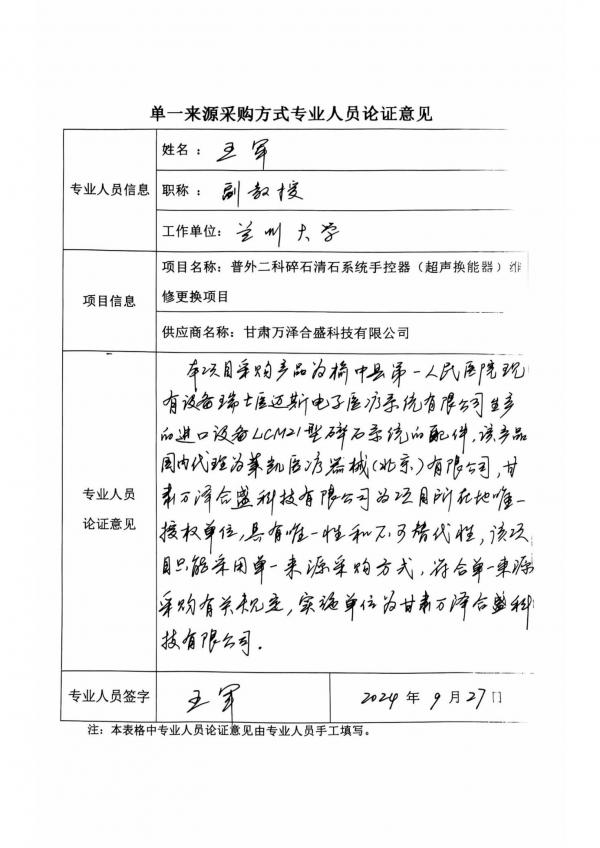 单一来源采购方式专业人员论证意见
专业人员信息
姓名：王军
职称：副教授
工作单位：兰州大学
项目信息
项目名称：普外二科碎石清石系统手控器（超声换能器）维
修更换项目
供应商名称：甘肃万泽合盛科技有限公司
专业人员
论证意见
本项目采购产品为榆中县第一人民医院现
有设备瑞士医迈斯电子医疗系统有限公司生产
的进口设备LCM21型碎石系统的配件，该产品
国内代理为莱凯医疗器械(北京)有限公司，甘
肃万泽合盛科技有限公司为项目所在地唯一
授权单位，具有唯一性和不可替代性，该项
目只能采用单一来源采购方式，符合单一来源
采购有关规定，实施单位为甘肃万泽合盛科
技有限公司．
专业人员签字
王军
2024年9月27日
注：本表格中专业人员论证意见由专业人员手工填写。